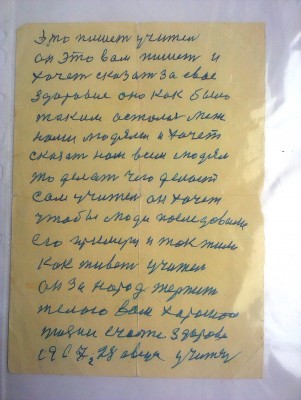 Это пишет учител
он это вам пишет и
хочет сказат за свое
здоровие оно как было
таким остался меж
нами людями и хочет
сказат нам всем людям
то делат чего делает
сам учител он хочет
чтобы люди последовали
его примеру и так жили
как живет учител
он за народ терпит
желаю вам хароших
жизни счасте здоровя
1967, 28 учител